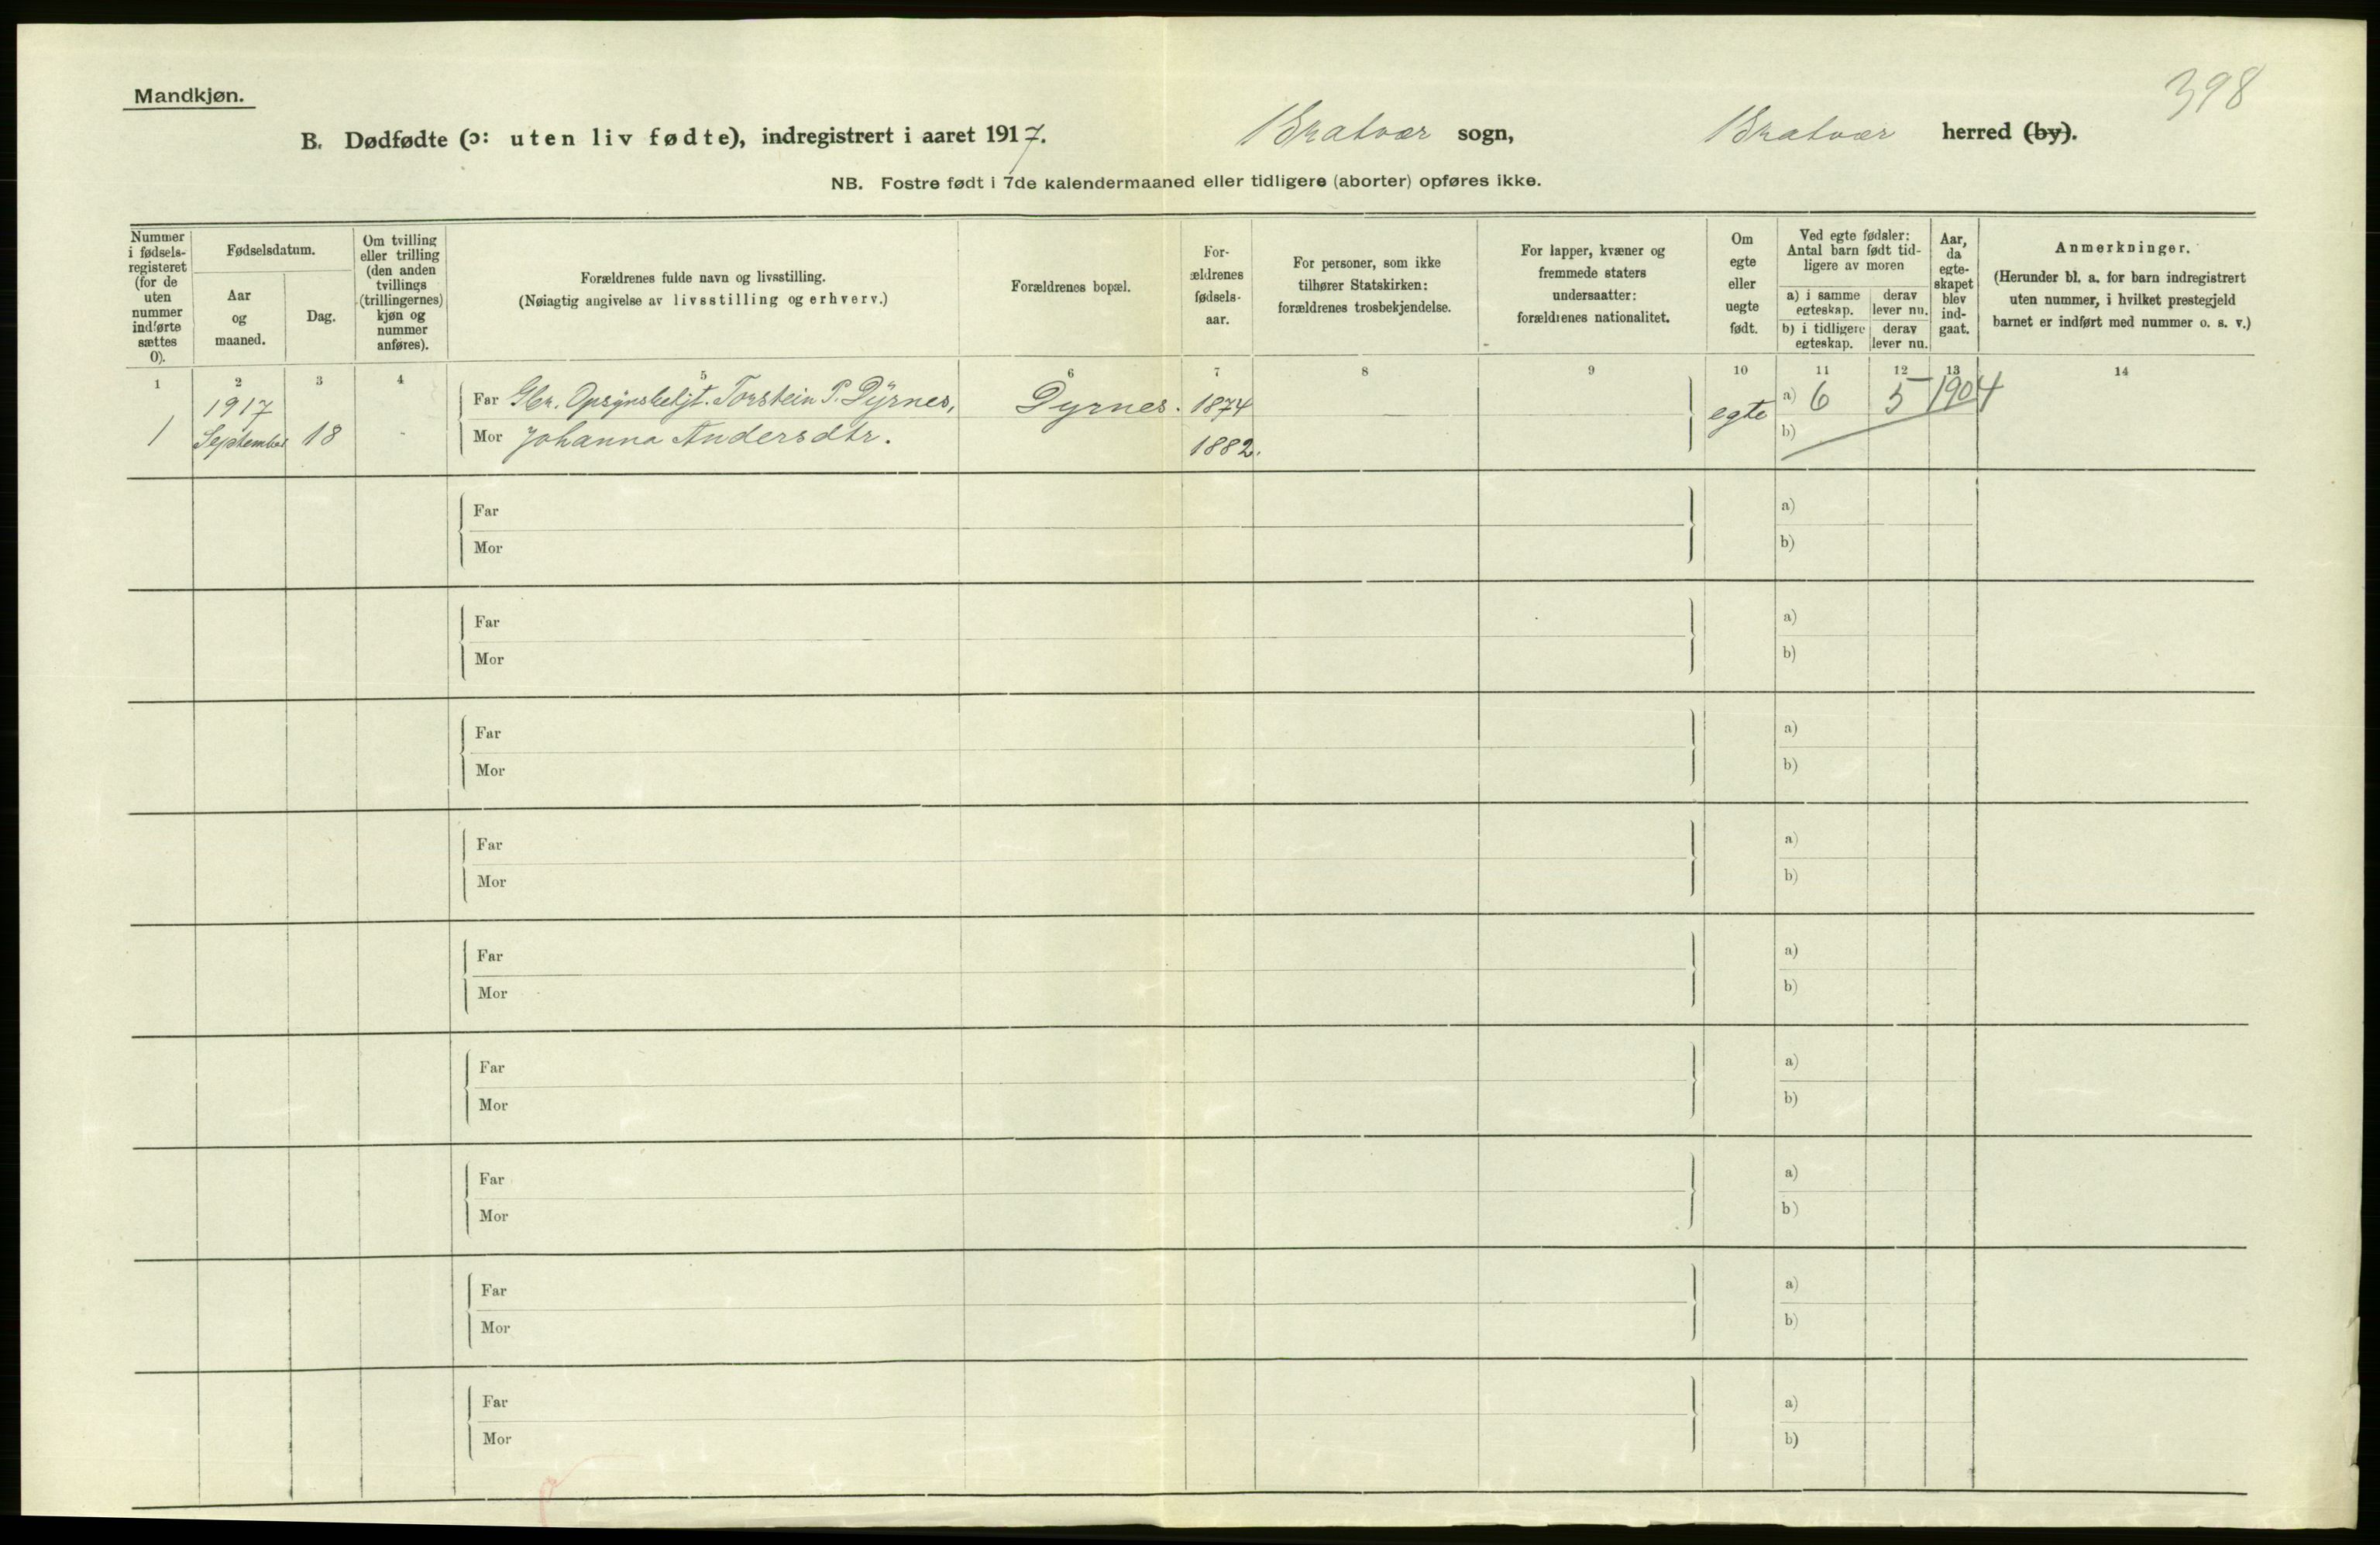 398
Mandkjøn.
B. Dødfødte (ɔ: uten liv fødte), indregistrert i aaret 1917. Bratvær sogn, Bratvær herred (by).
NB. Fostre født i 7de kalendermaaned eller tidligere (aborter) opføres ikke.
Nummer i fødsels-registeret (for de uten nummer indførte sættes 0).
Fødselsdatum.
Aar og maaned.
Dag.
Om tvilling eller trilling (den anden tvillings (trillingernes) kjøn og nummer anføres).
Forældrenes fulde navn og livsstilling.
(Nøiagtig angivelse av livsstilling og erhverv.)
Forældrenes bopæl.
For-ældrenes fødsels-aar.
For personer, som ikke tilhører Statskirken: forældrenes trosbekjendelse.
For lapper, kvæner og fremmede staters undersaatter: forældrenes nationalitet.
Om egte eller uegte født.
Ved egte fødsler: Antal barn født tid-ligere av moren
a) i samme egteskap. derav lever nu.
b) i tidligere egteskap. derav lever nu.
Aar, da egte-skapet blev ind-gaat.
Anmerkninger.
(Herunder bl. a. for barn indregistrert uten nummer, i hvilket prestegjeld barnet er indført med nummer o. s. v.)
1 2 3 4 5 6 7 8 9 10 11 12 13 14
1917 Far Gbr. Opsynsbetjt. Torstein P. Dyrnes, Dyrnes. 1874 egte a) 6 5 1904
1 September 18 - Mor Johanna Andersdtr. 1882. b)
Far a)
Mor b)
Far a)
Mor b)
Far a)
Mor b)
Far a)
Mor b)
Far a)
Mor b)
Far a)
Mor b)
Far a)
Mor b)
Far a)
Mor b)
Far a)
Mor b)